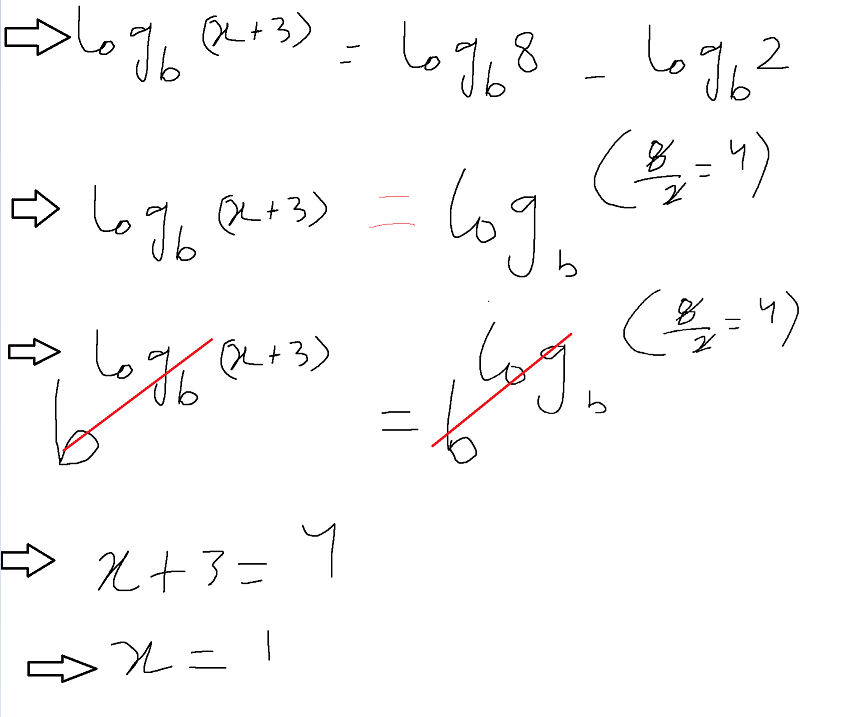 ⇒ log_b (x+3) = log_b 8 - log_b 2
⇒ log_b (x+3) = log_b (8/2 = 4)
⇒ b^(log_b (x+3)) = b^(log_b (8/2 = 4))
⇒ x+3 = 4
⇒ x = 1